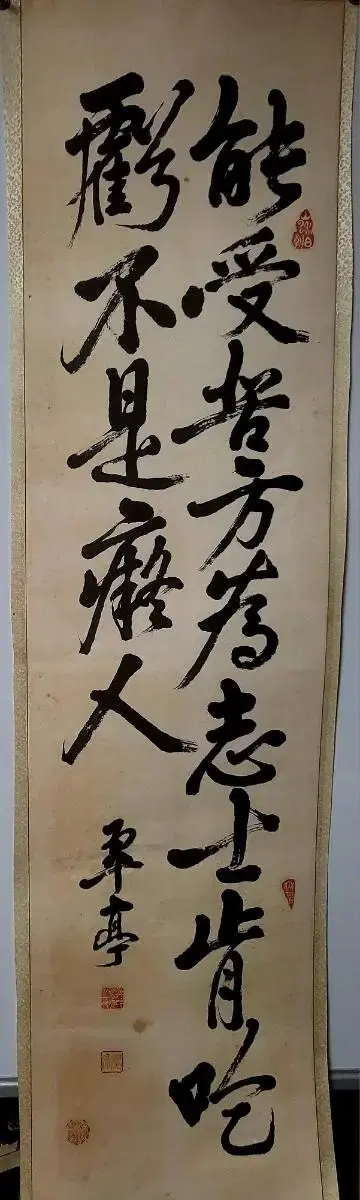 能受苦方為志士肯吃
虧不是癡人
平亭